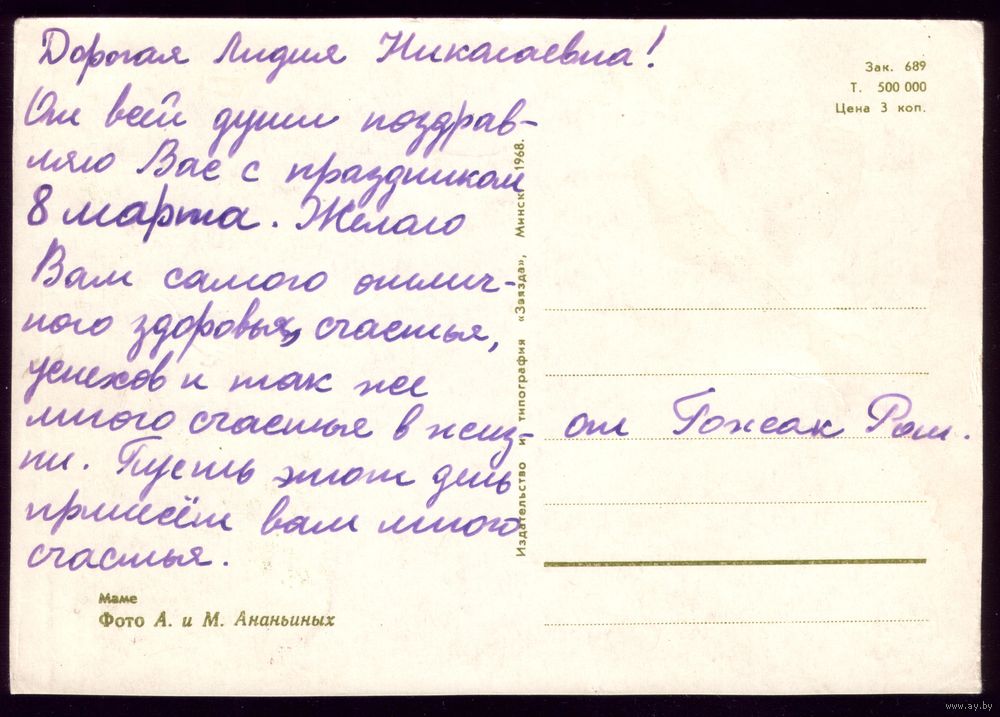 Дорогая Лидия Николаевна!
От всей души поздрав-
ляю Вас с праздником
8 марта. Желаю
Вам самого отлич-
ного здоровья, счастья,
успехов и так же
много счастье в жиз-
ни. Пусть этот день
принесёт вам много
счастья.
Маме
Фото А. и М. Ананьиных
Издательство и типография «Звязда», Минск. 1968.
Зак. 689
Т. 500 000
Цена 3 коп.
от Гожсак Ром.
www.ay.by